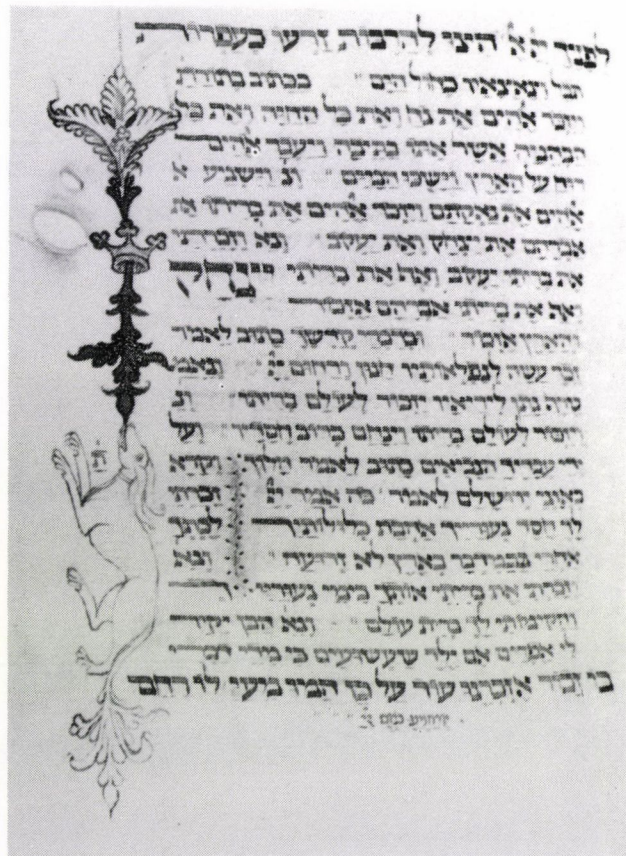 לפניך להרבות זרעו כעפרות
תבל וצאצאיו כחול הים ככתוב בתורתך
ויזכר אלהים את נח ואת כל החיה ואת כל
הבהמה אשר אתו בתיבה ויעבר אלהים
רוח על הארץ וישכו המים ונ וישמע א
אלהים את נאקתם ויזכר אלהים את בריתו את
אברהם את יצחק ואת יעקב ונא וזכרתי
את בריתי יעקב ואף את בריתי יצחק
ואף את בריתי אברהם אזכור
והארץ אזכור ובדברי קדשך כתוב לאמר
זכר עשה לנפלאותיו חנון ורחום יי ונאמ
טרף נתן ליריאיו יזכור לעולם בריתו ונ
ויזכור לעולם בריתו וינחם כרוב חסדיו ועל
ידי עבדיך הנביאים כתוב לאמר הלוך וקרא
באזני ירושלם לאמר כה אמר יי זכרתי
לך חסד נעוריך אהבת כלולותיך לכתך
אחרי במדבר בארץ לא זרועה ונא
וזכרתי את בריתי אותך בימי נעוריך
והקימותי לך ברית עולם ונא הבן יקיר
לי אפרים אם ילד שעשועים כי מידי דברי
כי זכור אזכרנו עוד על כן המו מיעי לו רחם